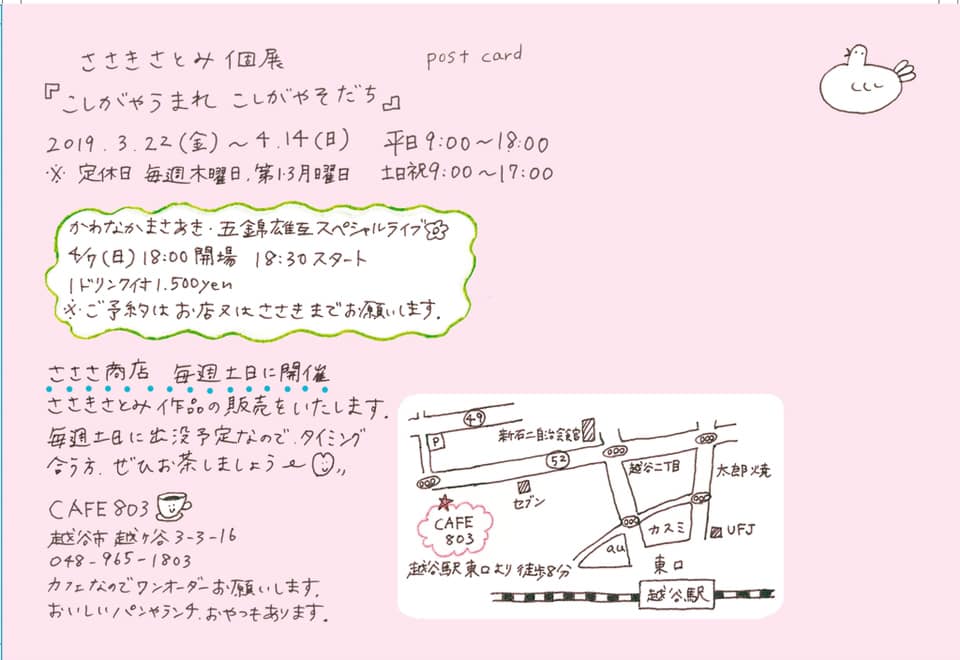 ささきさとみ個展
post card
『こしがやうまれ こしがやそだち』
2019.3.22(金)〜4.14(日) 平日9:00〜18:00
※ 定休日 毎週木曜日、第1・3月曜日 土日祝9:00〜17:00
かわなかまさあき・五錦雄互スペシャルライブ
4/7(日)18:00開場 18:30スタート
1ドリンク付1.500yen
※ご予約はお店又はささきまでお願いします。
さささ商店 毎週土日に開催
ささきさとみ作品の販売をいたします。
毎週土日に出没予定なので、タイミング
合う方、ぜひお茶しましょう
CAFE 803
越谷市越ヶ谷3-3-16
048-965-1803
カフェなのでワンオーダーお願いします。
おいしいパンやランチ、おやつもあります。
49
P
新石二自治会館
52
越谷二丁目
太郎焼
セブン
CAFE
803
カスミ
UFJ
au
越谷駅東口より徒歩8分
東口
越谷駅